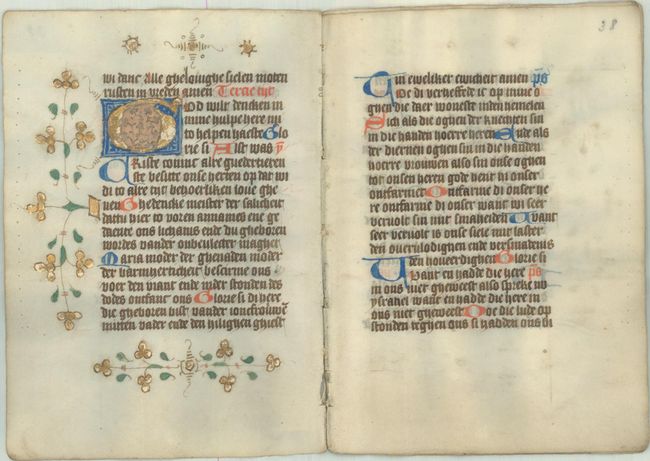 wi dancken Alle ghelouighe sielen moten
rusten in vreden amen Tercie tyt
God wilt dencken in
mine hulpe here mi
to helpen haeste Glo
rie si Alst was
Kriste comme alre guedertieren
ste besitte onse herten op dat wi
di to alre tyt behoerliken loue ghe
uen Ghedencke meister der salicheit
dattu hier to voren annames ene ge
daente ons lichams ende du gheboren
wordes vander onbeulecter maghet
Maria moder der ghenaden moder
der barmherticheit bescerme ons
voer den viant ende inder stonden des
dodes ontfanc ons Glorie si di here
die gheboren bist vander ioncfrouwen
mitten vader ende den hilighen gheest
38
in eweliker ewicheit amen ps
Toe di verheffede ic op mine o
ghen die daer woneste inden hemelen
Sich als die oghen der knechten sin
in die handen hoerre heren Ende als
der diernen oghen sin in die handen
hoerre vrouwen also sin onse oghen
tot onsen heren gode hent hi onser
ontfarmet Ontfarme di onser he
re ontfarme di onser want wi seer
veruolt sin mit smaheiden Want
seer veruolt is onse siele mit laster
den ouerulodighen ende versmadenis
den houeerdighen Glorie si
Want en hadde die here ps
in ons niet gheweest also spreke nv
ysrahel want en hadde die here in
ons niet gheweest Doe die lude op
stonden teghen ons si hadden ons bi